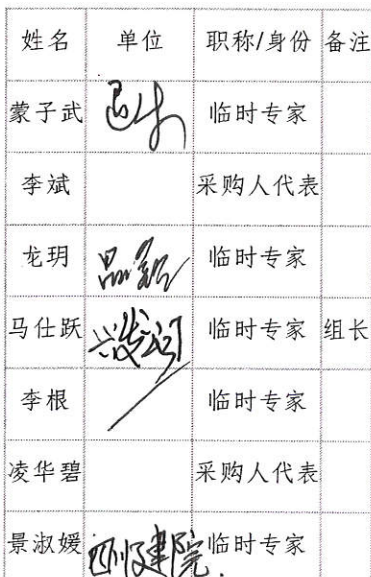 姓名 单位 职称/身份 备注
蒙子武 临时专家
李斌 采购人代表
龙玥 临时专家
马仕跃 临时专家 组长
李根 临时专家
凌华碧 采购人代表
景淑媛 临时专家